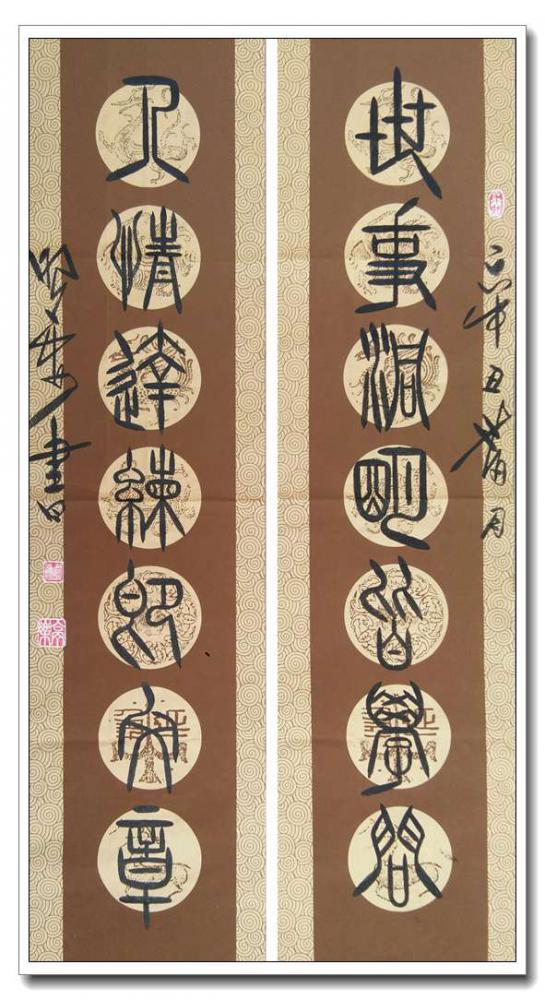 年丑蒲月
世事洞明皆學問
人情達練即文章
書